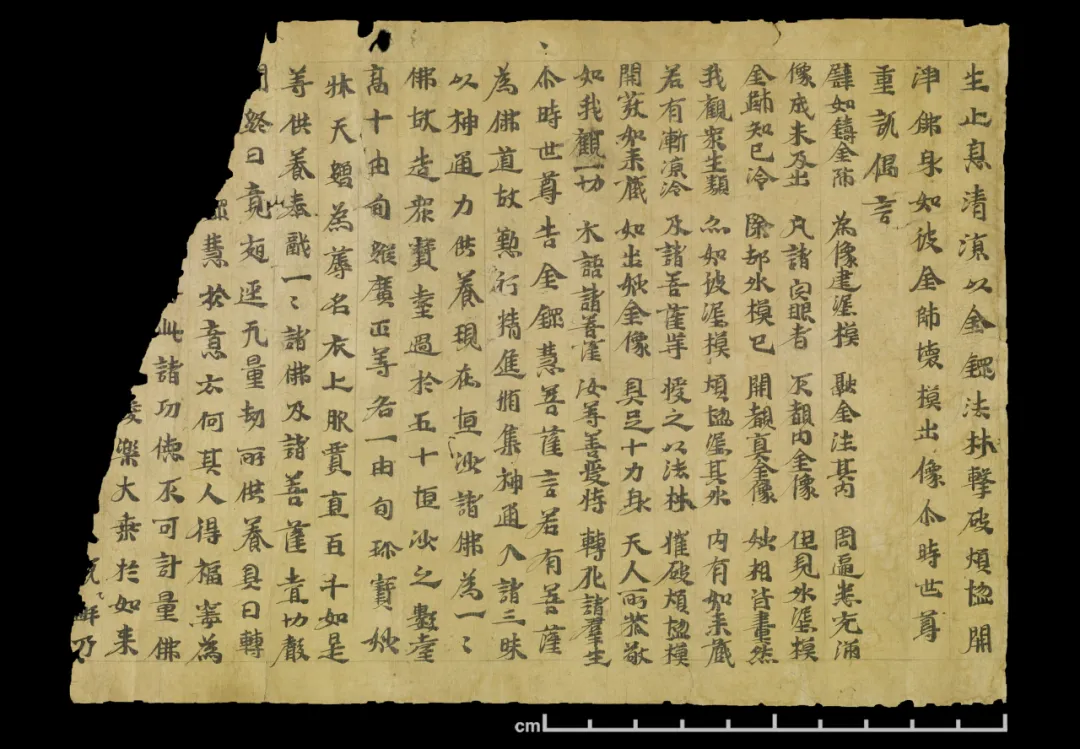 生止息清涼以金剛法杵擊破煩惱開
淨佛身如彼金師壞模出像尒時世尊
重説偈言
譬如鑄金師 為像建埿模 融金注其内 周遍悉充滿
像成未及出 凡諸肉眼者 不覩内金像 但見外埿模
金師知已冷 除却外模已 開覩真金像 妙相皆晝然
我觀衆生類 亦如彼埿模 煩惱埿其外 内有如来藏
若有漸涼冷 及諸菩薩等 授之以法杵 摧破煩惱模
開發如来藏 如出妙金像 具足十力身 天人所恭敬
如我觀一切 語諸菩薩 汝等善受持 轉化諸羣生
尒時世尊告金剛慧菩薩言若有菩薩
為佛道故懃行精進脩集神通入諸三昧
以神通力供養現在恒沙諸佛為一々
佛故造衆寶臺過於五十恒沙之數臺
高十由旬縱廣正等各一由旬珎寶妙
牀天繒為蓐名衣上服賈直百千如是
等供養奉獻一々諸佛及諸菩薩切聲
聞終日竟夜逕无量劫所供養具日轉
剛慧於意云何其人得福寧為
此諸功德不可計量佛
愛樂大乘於如来
解乃